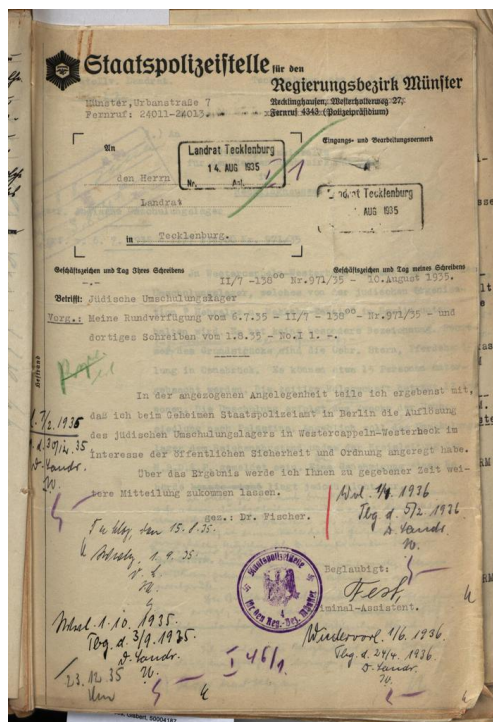 Staatspolizeistelle für den
Regierungsbezirk Münster
Münster, Urbanstraße 7
Fernruf: 24011-24013.
Recklinghausen, Westerholterweg 27,
Fernruf 4343 (Polizeipräsidium)
An
Landrat Tecklenburg
14. AUG 1935
Nr. Anl.
Eingangs- und Bearbeitungsvermerk
den Herrn
Landrat
in Tecklenburg.
Landrat Tecklenburg
AUG 1935
Geschäftszeichen und Tag Ihres Schreibens
Geschäftszeichen und Tag meines Schreibens
-.-
II/7 -138⁰⁰ Nr.971/35 - 10.August 1935.
Betrifft: Jüdische Umschulungslager
Vorg.: Meine Rundverfügung vom 6.7.35 - II/7 - 138⁰⁰ - Nr.971/35 - und
dortiges Schreiben vom 1.8.35 - No.I 1. -.
In der angezogenen Angelegenheit teile ich ergebenst mit,
daß ich beim Geheimen Staatspolizeiamt in Berlin die Auflösung
des jüdischen Umschulungslagers in Westercappeln-Westerbeck im
Interesse der öffentlichen Sicherheit und Ordnung angeregt habe.
Über das Ergebnis werde ich Ihnen zu gegebener Zeit wei-
tere Mitteilung zukommen lassen.
gez.: Dr. Fischer.
1936
Tbg d. 5/2 1936
D. Landr.
den 15.8.35.
1.9.35.
Staatspolizeistelle
für den Reg.-Bez. Münster
Beglaubigt:
Fest,
Kriminal-Assistent.
1.10.1935.
Tbg. d. 3/9 1935.
D. Landr.
23.12.35
I 46/1
Wiedervorl. 1/6. 1936.
Tbg. d. 24/4. 1936.
D. Landr.